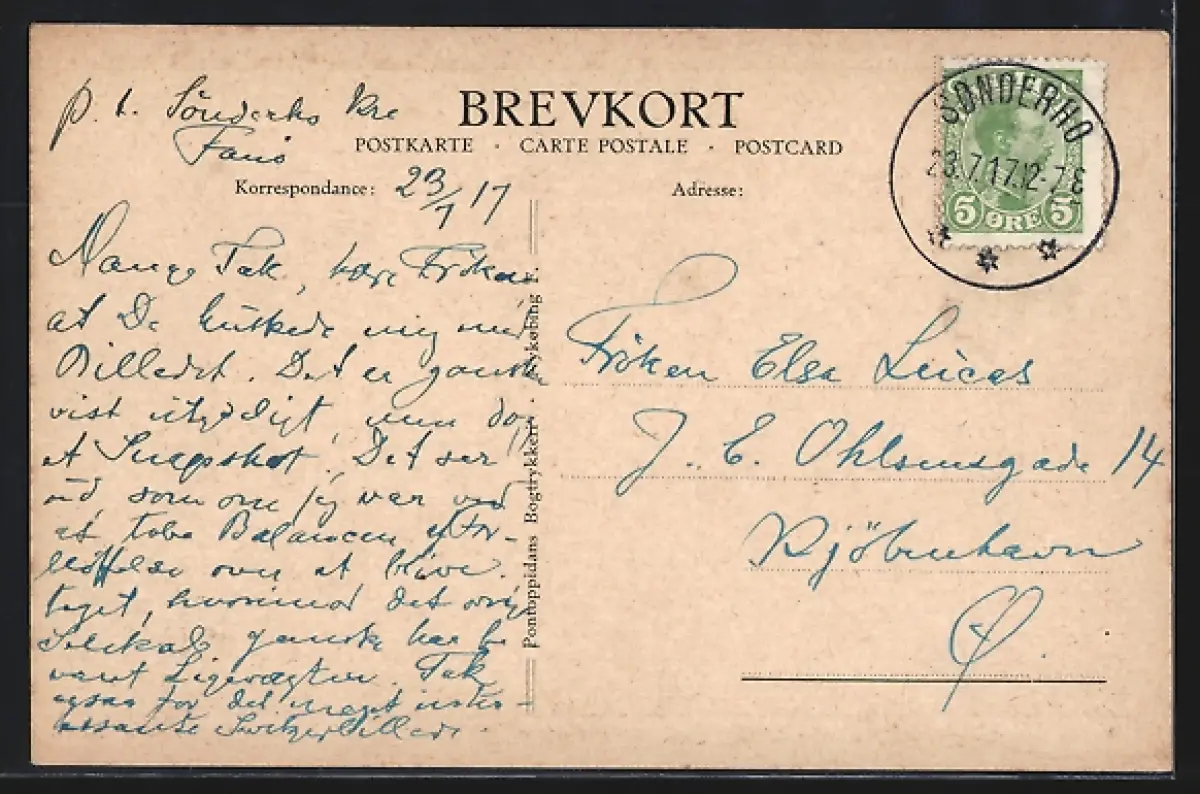 p. t. Sönderho Kro
Fanö
BREVKORT
POSTKARTE · CARTE POSTALE · POSTCARD
Korrespondance: 23/7 17
Adresse:
SØNDERHO
23.7.17.12-7E
5 ØRE 5
Mange Tak, kære Fröken
at De huskede mig med
Billedet. Det er ganske
vist utydeligt, men dog
et Snapshot. Det ser
ud, som om jeg var ved
at tabe Balancen af For-
bløffelse over at blive
taget, hvorimod det
ganske har be-
varet Ligevægten. Tak
ogsaa for det meget inter-
essante
Pontoppidans Bogtrykkeri · Nykøbing F.
Fröken Elsa Leicas
J. E. Ohlsensgade 14
Kjöbenhavn
Ø.